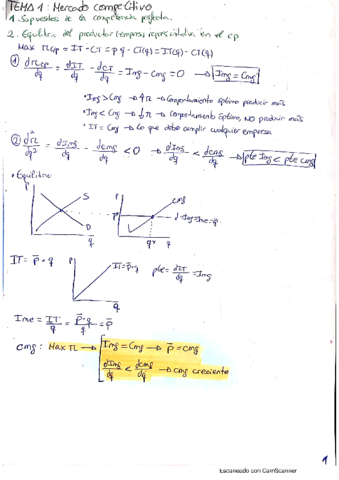 TEMA 1: Mercado competitivo
1. Supuestos de la competencia perfecta.
2. Equilibrio del productor (empresa) representativa en el cp
Max πcp = IT - CT = p·q - CT(q) = IT(q) - CT(q)
① dπcp/dq = dIT/dq - dCT/dq = Img - Cmg = 0 → Img = Cmg
· Img > Cmg → ↑π → comportamiento óptimo producir más
· Img < Cmg → ↓π → comportamiento óptimo, NO producir más
· IT = Cmg → lo que debe cumplir cualquier empresa
② d²π/dq = dImg/dq - dCmg/dq < 0 → dImg/dq < dCmg/dq → pte Img < pte cmg
· Equilibrio
P
S
D
q
P
cmg
P̄
d=Img=Ime=P̄
q*
q
IT = P̄ · q
IT = P̄·q
q
pte = dIT/dq = Img
Ime = IT/q = P̄·q/q = P̄
cmg: Max π → Img = Cmg → P̄ = cmg
dImg/dq < dCmg/dq → cmg creciente
1
Escaneado con CamScanner